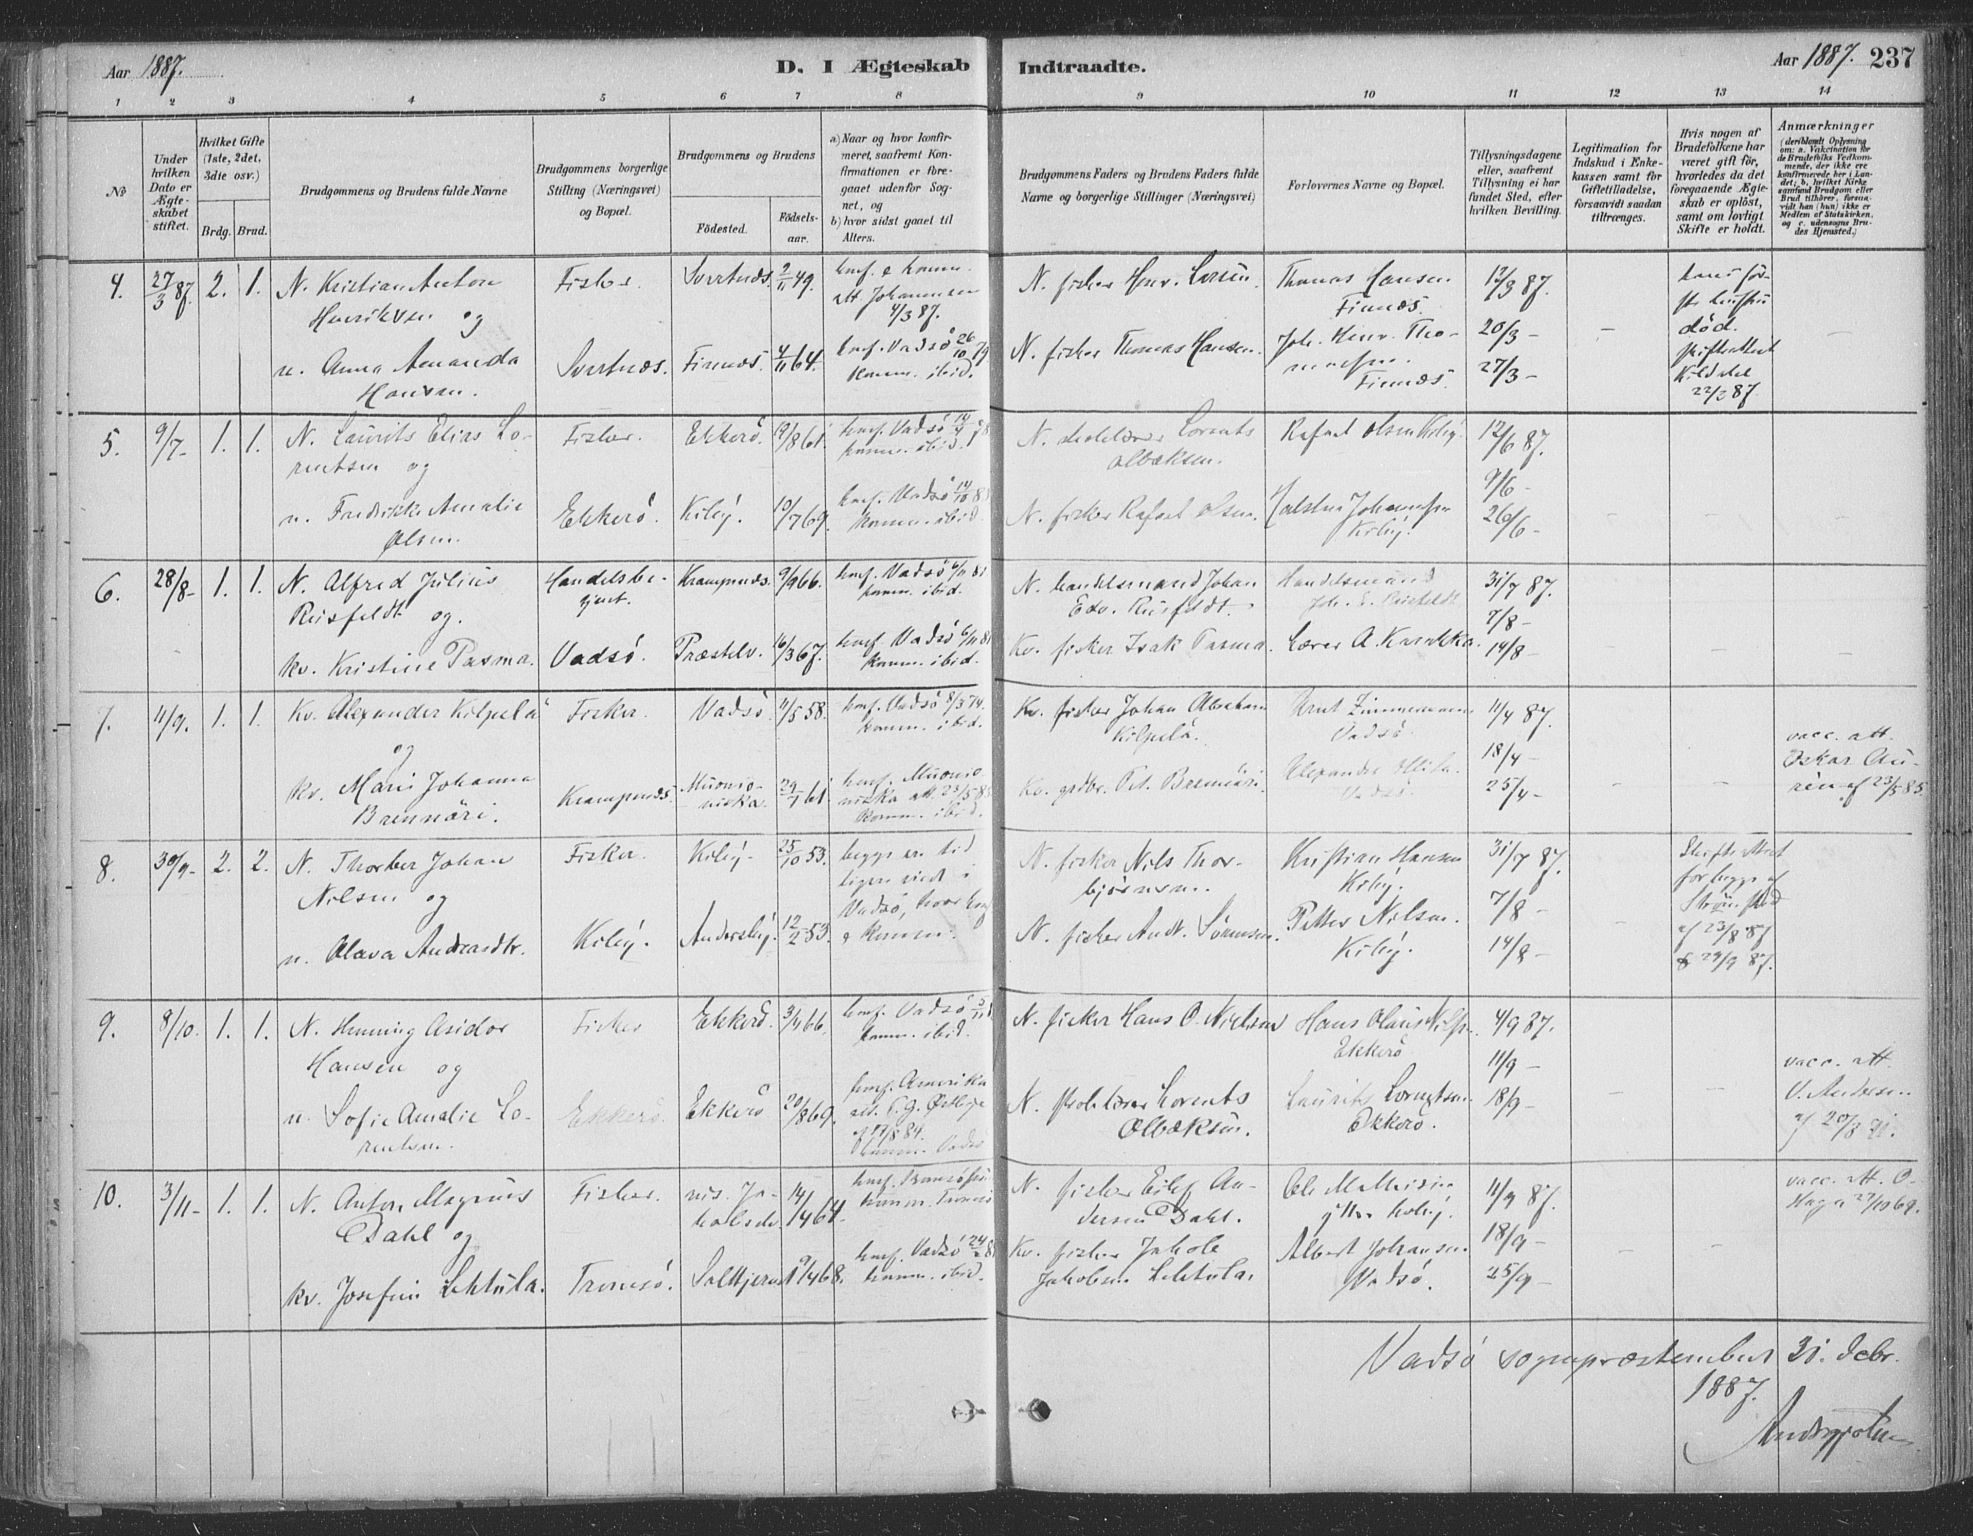 Aar 1887.
D. I Ægteskab
Indtraadte.
Aar 1887. 237
1 2 3 4 5 6 7 8 9 10 11 12 13 14
No
Under hvilken Dato er Ægteskabet stiftet.
Hvilket Gifte (1ste, 2det, 3die osv.)
Brdg. Brud.
Brudgommens og Brudens fulde Navne
Brudgommens borgerlige Stilling (Næringsvei) og Bopæl.
Brudgommens og Brudens
Födested.
Födselsaar.
a) Naar og hvor konfirmeret, saafremt Konfirmationen er foregaaet udenfor Sognet, og
b) hvor sidst gaaet til Alters.
Brudgommens Faders og Brudens Faders fulde Navne og borgerlige Stillinger (Næringsvei)
Forlovernes Navne og Bopæl.
Tillysningsdagene eller, saafremt Tillysning ei har fundet Sted, efter hvilken Bevilling.
Legitimation for Indskud i Enkekassen samt for Giftetilladelse, forsaavidt saadan tiltrænges.
Hvis nogen af Brudefolkene har været gift för, hvorledes da det foregaaende Ægteskab er oplöst, samt om lovligt Skifte er holdt.
Anmærkninger (deriblandt Oplysning om: a. Vakcination for de Brudefolks Vedkommende, der ikke ere konfirmerede her i Landet; b. hvilket Kirkesamfund Brudgom eller Brud tilhörer, forsaavidt han (hun) ikke er Medlem af Statskirken, og c. udensogns Brudes Hjemsted.)
4. 27/3 87. 2. 1.
N. Kristian Anton
Henriksen og
n. Anna Amanda
Hansen.
Fisker.
Svartnæs.
Svartnæs. 2/11 49.
Finnæs. 4/11 64.
konf. & komm.
att Johannesen
4/3 87.
konf. Vadsö 26/10 79
komm. ibid.
N. fisker Henr. Larsen
N. fisker Thomas Hansen.
Thomas Hansen
Finnæs.
Joh. Henr. Tho-
Finnæs.
12/3 87.
20/3 –
27/3 –
död.
skifteattest
22/3 87.
5. 9/7 – 1. 1.
N. Laurits Elias Lo-
rentsen og
n. Fredrikke Amalie
Olsen.
Fisker.
Ekkerö.
Ekkerö. 19/8 61.
Kiby. 13/7 69.
konf. Vadsö
komm. ibid.
konf. Vadsö
komm. ibid.
N. skolelærer Lorents
Olbæksen.
N. fisker Rafael Olsen.
Rafael Olsen Kiby.
Kiby.
12/6 87.
9/6 –
26/6 –
6. 28/8 – 1. 1.
N. Alfred Julius
Reisfeldt og.
kv. Kristine Pasma.
Handelsbe-
tjent.
Vadsö.
Krampnæs. 9/9 66.
Præstelv. 16/3 67.
konf. Vadsö 6/11 81
komm. ibid.
konf. Vadsö 6/11 81
komm. ibid.
N. handelsmand Johan
Edv. Reisfeldt.
Kv. fisker Isak Pasma.
Handelsmand
Joh. E. Reisfeldt
Lærer A. Karikka.
31/7 87.
7/8 –
14/8 –
7. 11/9. 1. 1.
Kv. Alexander Kilpelä
og
kv. Marie Johanna
Brennäri.
Fisker.
Krampenæs.
Vadsö. 11/5 58.
Muonio-
niska. 29/1 61.
konf. Vadsö 8/3 74.
komm. ibid.
konf. Muonio-
niska att. 23/5 85
komm. ibid.
Kv. fisker Johan Abraham
Kilpelä.
Kv. gdbr. Pet. Brennäri.
Arnt Zimmermann
Vadsö.
Vadsö.
11/4 87.
18/4 –
25/4 –
vacc. att.
Oskar Au-
rén af 23/5 85.
8. 30/9 – 2. 2.
N. Thorber Johan
Nilsen og
n. Olava Andreasdtr.
Fisker.
Kiby.
Kiby. 25/10 53.
Andersby. 12/2 53.
begge ere tid
ligere viet i
Vadsö, hvor konf
& komm.
N. fisker Nils Thor-
björnsen.
N. fisker Andr. Sörensen.
Kristian Hansen
Kiby.
Petter Nilsen.
Kiby.
31/7 87.
7/8 –
14/8 –
Skifteattest
for begge af
af 23/8 87
& 29/9 87.
9. 8/10. 1. 1.
N. Henning Asidor
Hansen og
n. Sofie Amalie Lo-
rentsen.
Fisker
Ekkerö.
Ekkerö. 3/11 66.
Ekkerö 20/8 69.
konf. Vadsö
komm. ibid.
konf. Amerika
att. P. G. Östbye
af 17/8 84.
komm. Vadsö
N. fisker Hans O. Nielsen
N. skolelærer Lorents
Olbæksen.
Hans Olaus
Ekkerö
Laurits Lorentsen
Ekkerö.
4/9 87.
11/9 –
18/9 –
vacc. att.
V. Andersen
af 20/3
10. 3/11 – 1. 1.
N. Anton Magnus
Dahl og
kv. Josefine Lehtula.
Fisker.
Tromsö.
14/4 64.
konf. Tromsö
komm. Tromsö
konf. Vadsö
komm. ibid.
N. fisker Eilef An-
dersen Dahl.
Kv. fisker Jakob
Jakobsen Lehtula.
Ole Mathisen
ytter Kiby.
Albert Johansen
Vadsö.
11/9 87.
18/9 –
25/9 –
vacc. att. O.
Haga 27/10 69.
Vadsö sogneprestembed 31. Decbr.
1887.